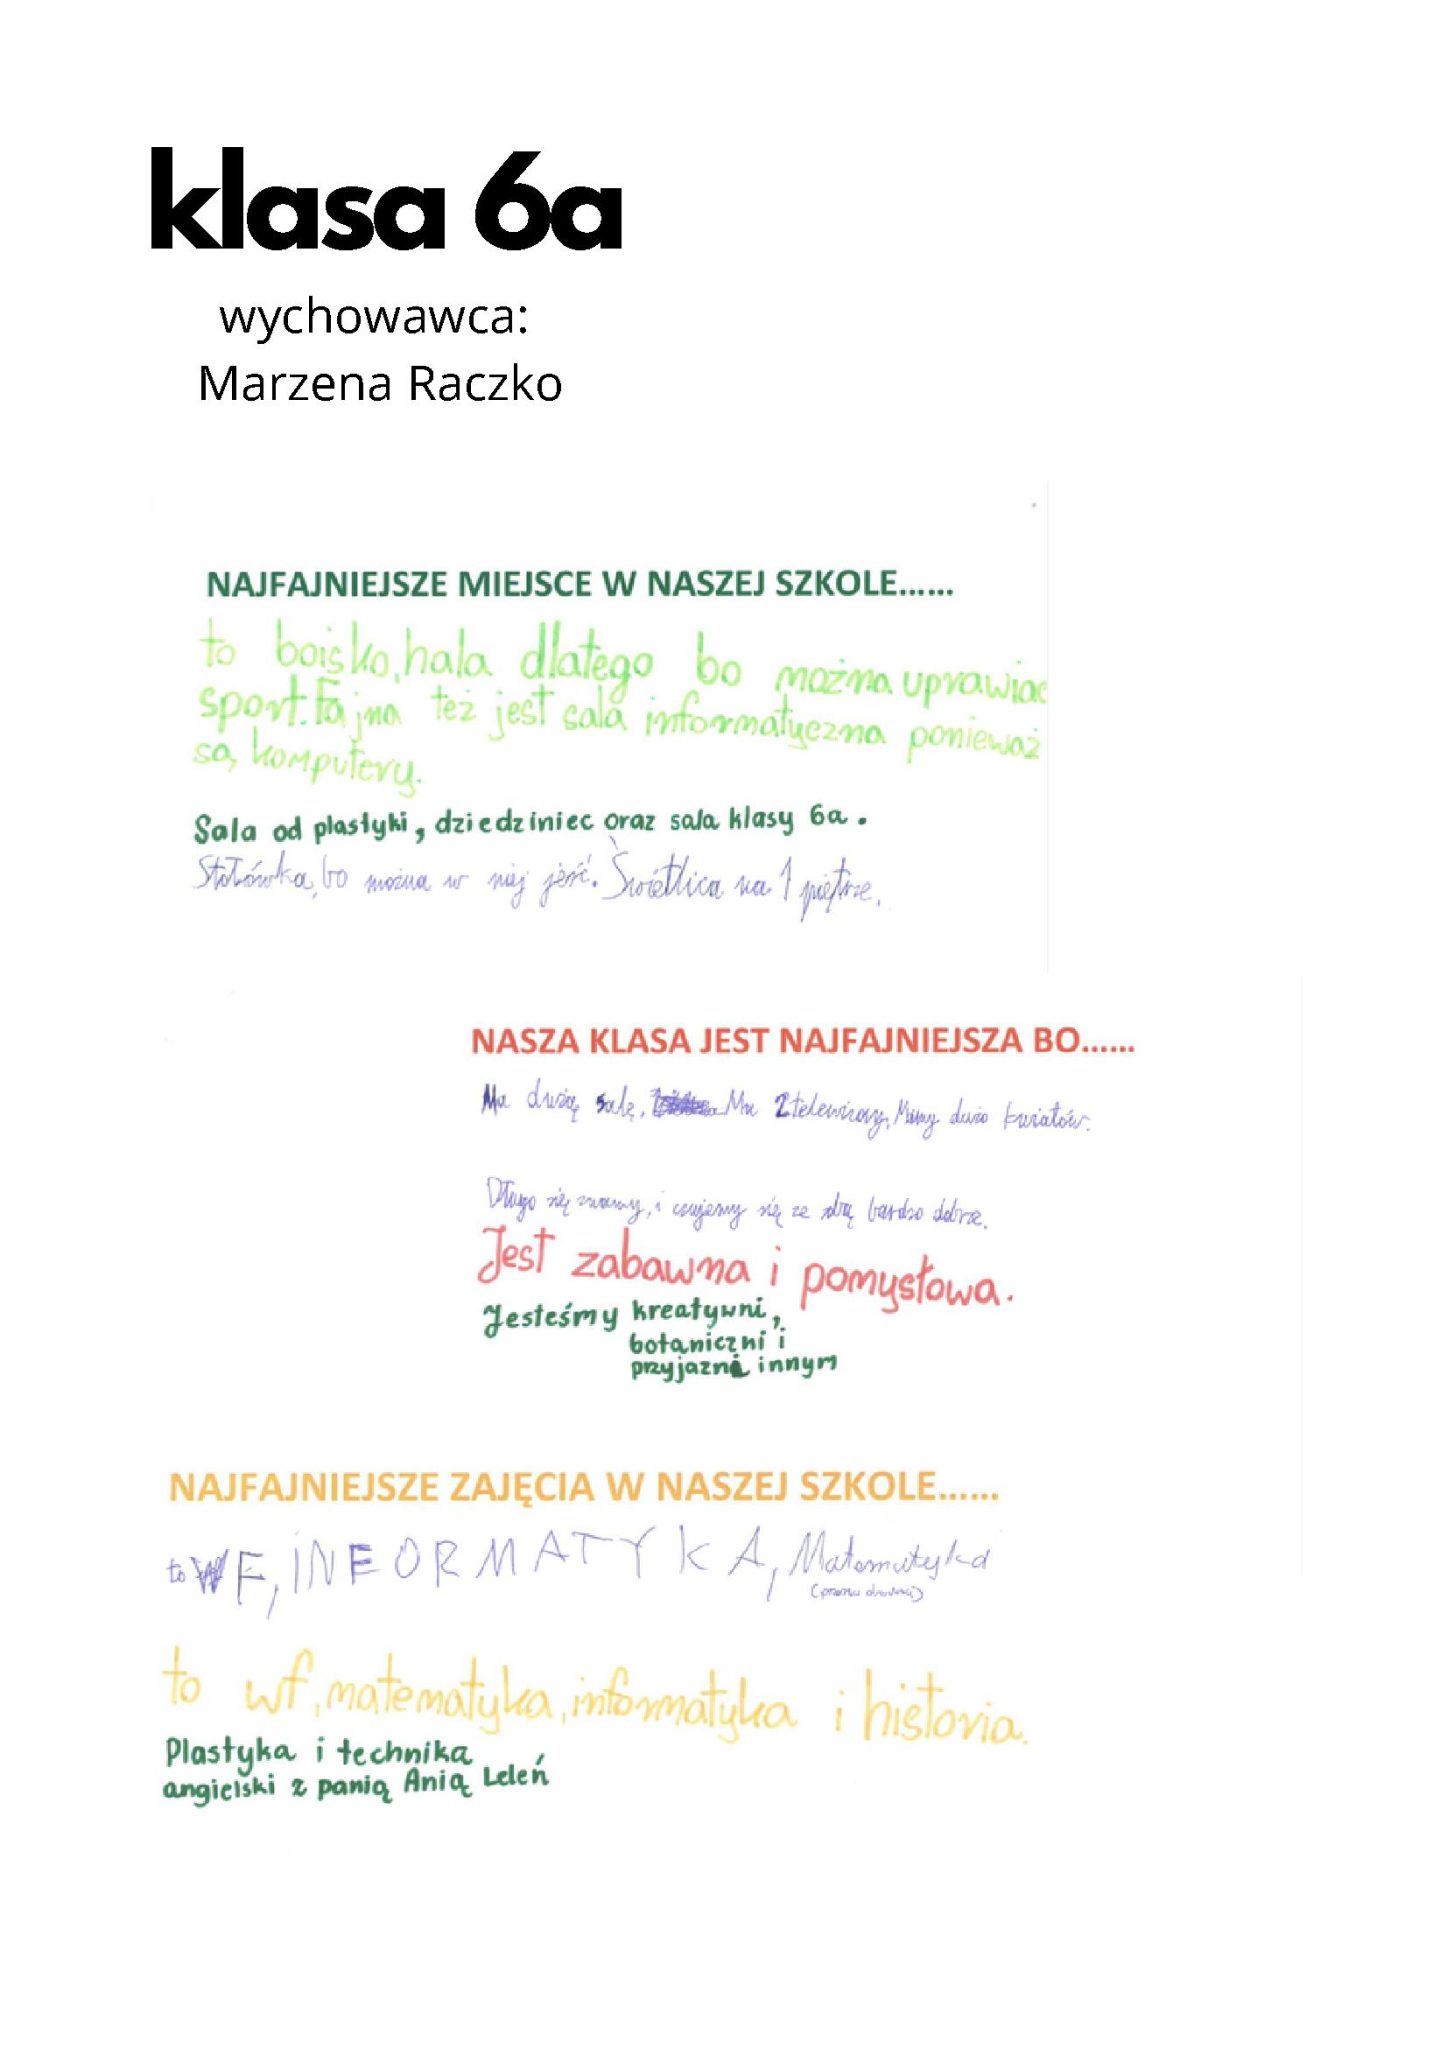 klasa 6a
wychowawca:
Marzena Raczko
NAJFAJNIEJSZE MIEJSCE W NASZEJ SZKOLE......
to boisko, hala dlatego bo można uprawiac
sport. Fajna też jest sala informatyczna ponieważ
są komputery.
Sala od plastyki, dziedziniec oraz sala klasy 6a.
Stołówka, bo można w niej jeść. Świetlica na 1 piętrze.
NASZA KLASA JEST NAJFAJNIEJSZA BO......
Ma dużą salę, Ma 2 telewizory, Mamy dużo kwiatów.
Długo się znamy, i czujemy się ze sobą bardzo dobrze.
Jest zabawna i pomysłowa.
Jesteśmy kreatywni,
botaniczni i
przyjazni innym
NAJFAJNIEJSZE ZAJĘCIA W NASZEJ SZKOLE......
to WF, INFORMATYKA, Matematyka
to wf, matematyka, informatyka i historia.
Plastyka i technika
angielski z panią Anią Leleń